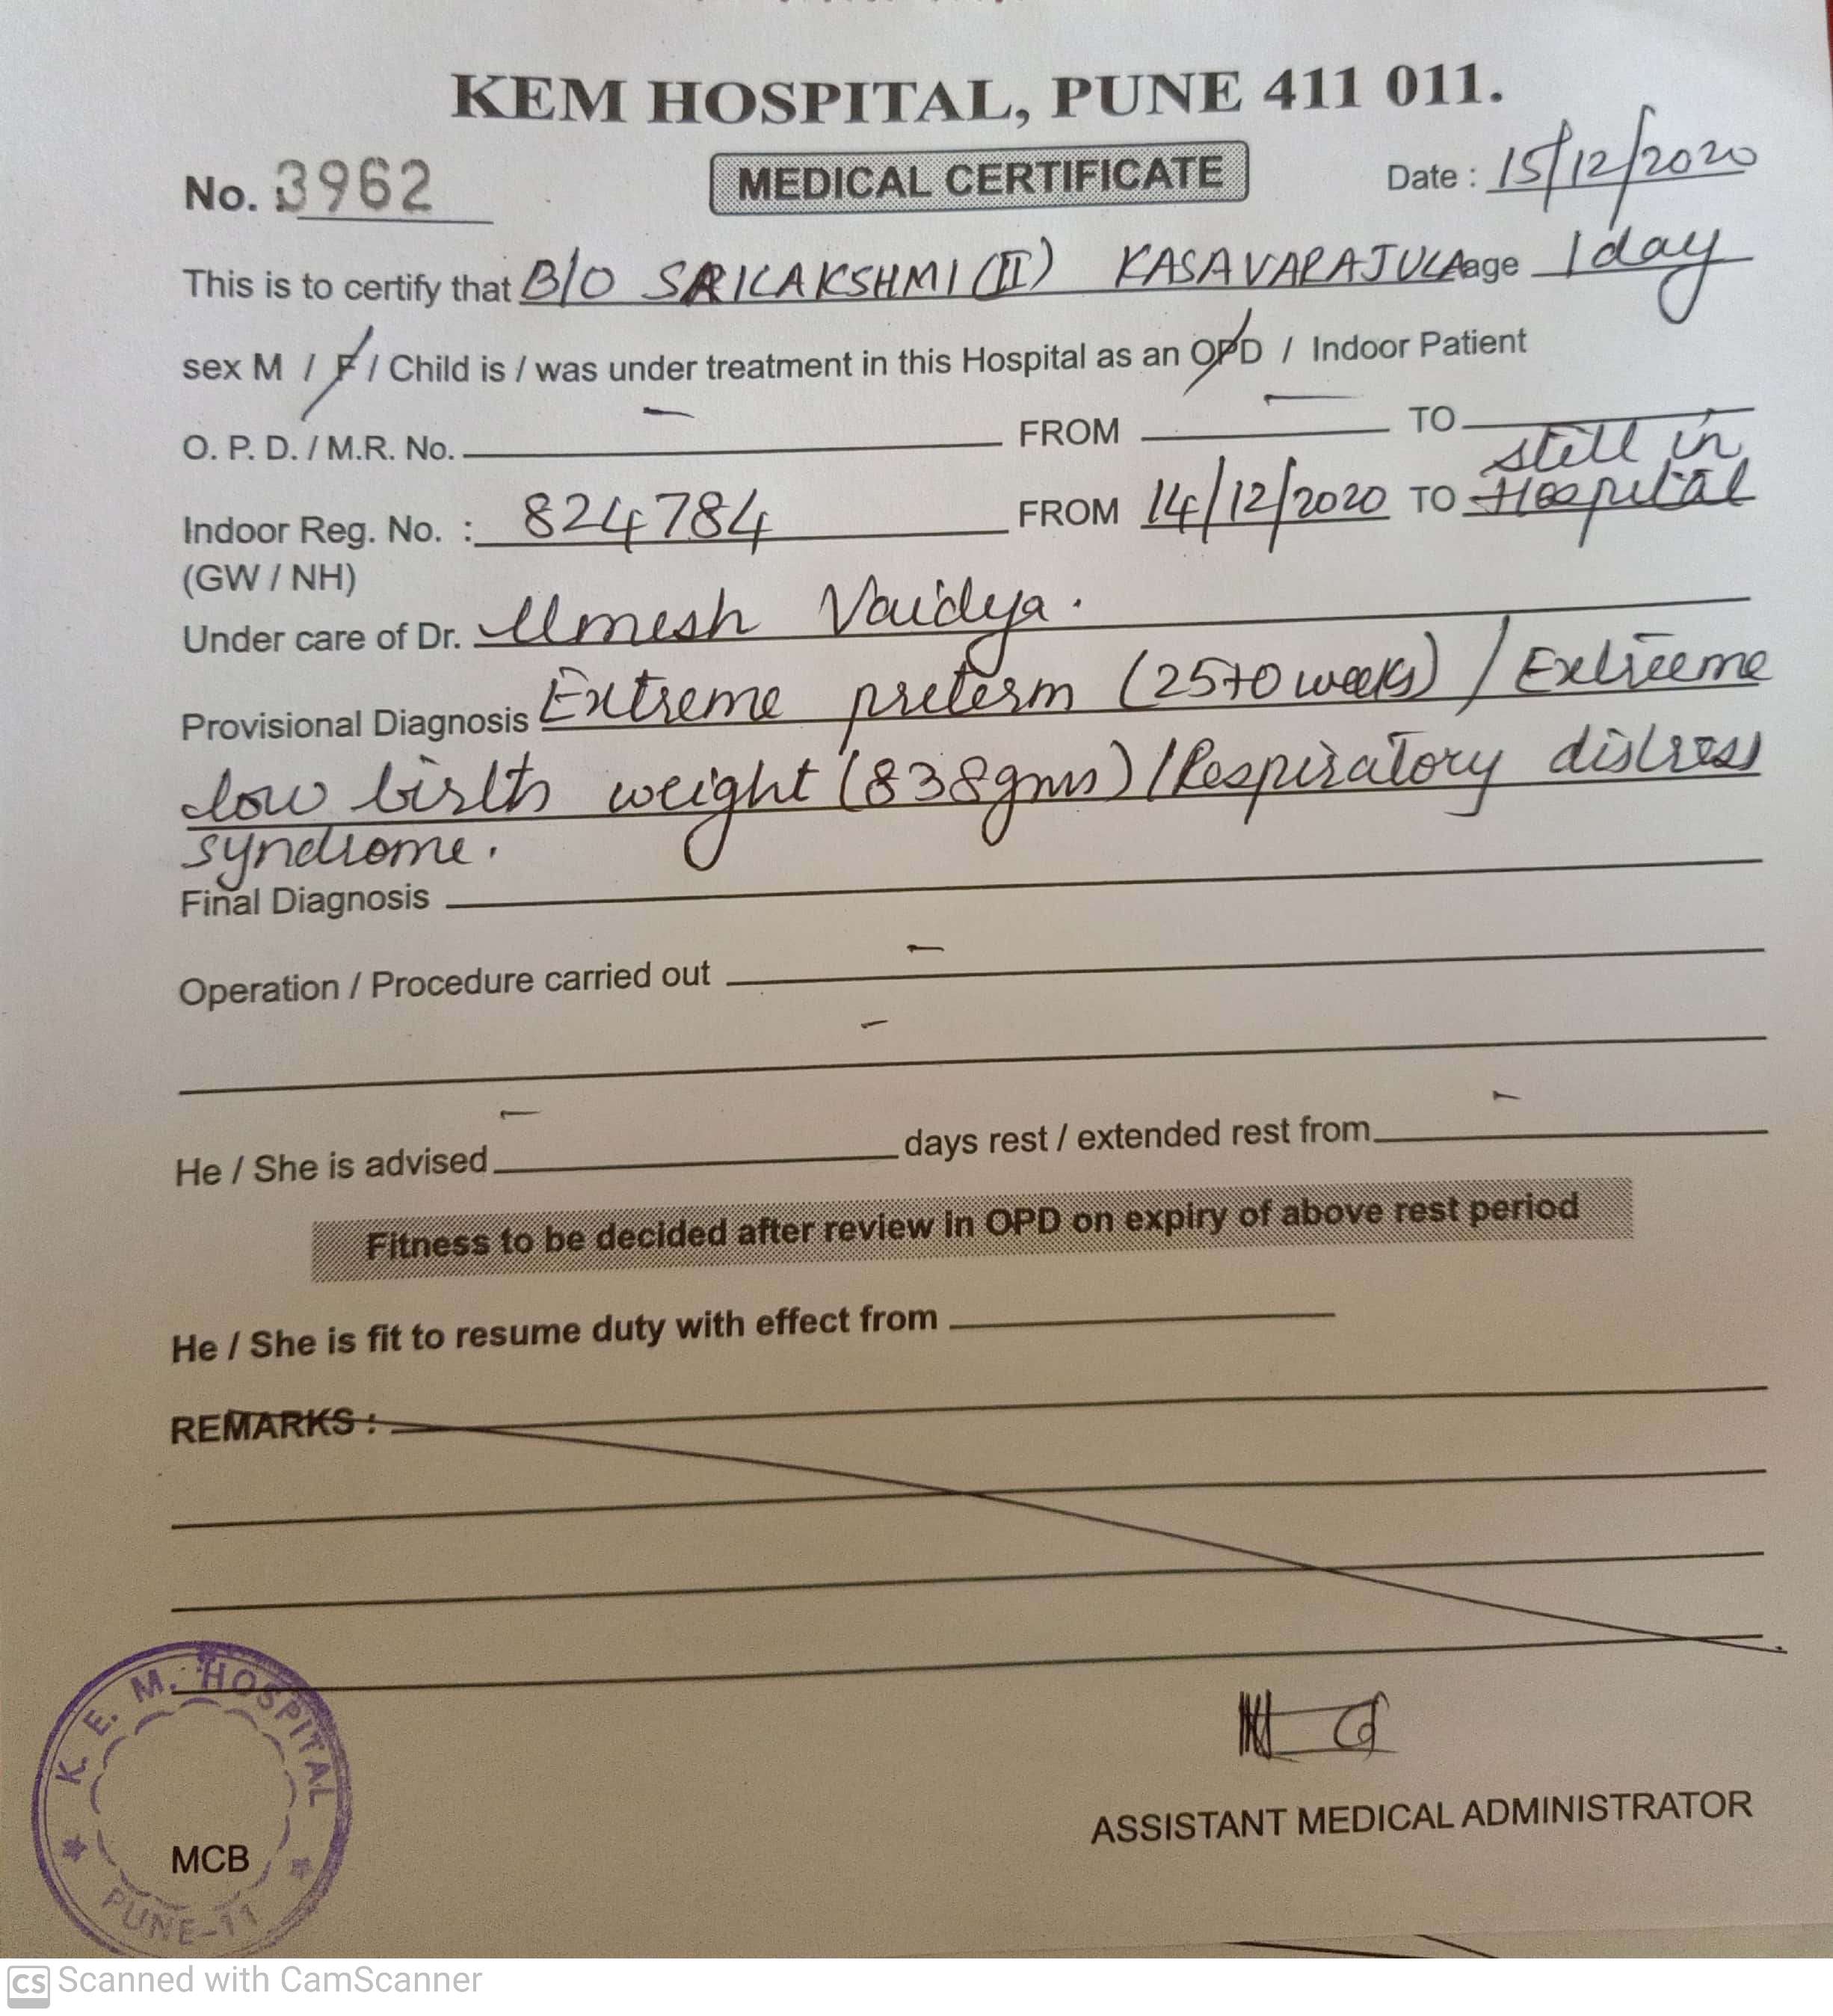 KEM HOSPITAL, PUNE 411 011.
No. 3962
MEDICAL CERTIFICATE
Date : 15/12/2020
This is to certify that B/O SRILAKSHMI (II) KASAVARAJULA age 1 day
sex M / F / Child is / was under treatment in this Hospital as an OPD / Indoor Patient
O. P. D. / M.R. No. - FROM - TO
Indoor Reg. No. : 824784 FROM 14/12/2020 TO still in Hospital
(GW / NH)
Under care of Dr. Umesh Vaidya.
Provisional Diagnosis Extreme preterm (25+0 weeks) / Extreeme
low birth weight (838gms) / Respiratory distress
syndrome.
Final Diagnosis
Operation / Procedure carried out -
-
He / She is advised - days rest / extended rest from -
Fitness to be decided after review in OPD on expiry of above rest period
He / She is fit to resume duty with effect from
REMARKS :
K. E. M. HOSPITAL
MCB
PUNE-11
ASSISTANT MEDICAL ADMINISTRATOR
CS Scanned with CamScanner